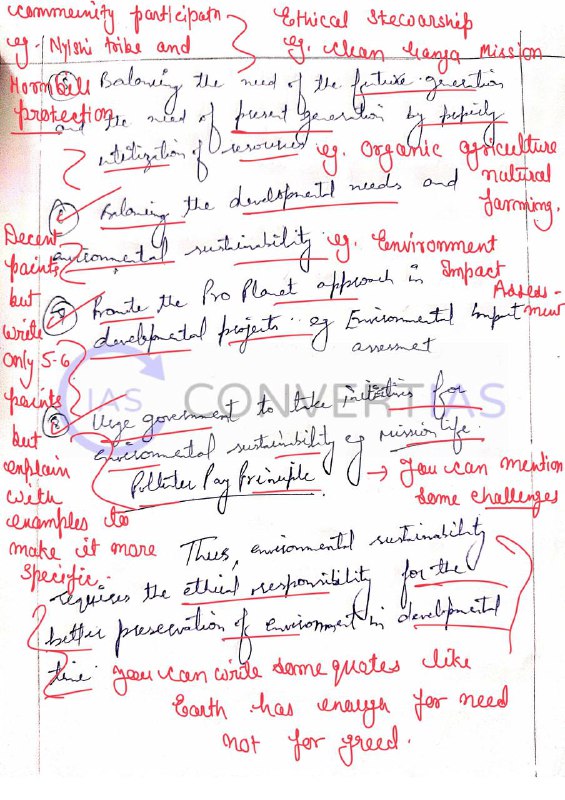 community participatn
eg. Nyishi tribe and
Hornbill
protection
Ethical Stewarship
eg. Clean Ganga Mission
Balancing the need of the future generation
and the need of present generation by properly
of resources eg. Organic agriculture
natural
farming.
Balancing the developmental needs and
environmental sustainability eg. Environment
Impact
Assess-
ment
Decent
points
but
write
only 5-6
points
but
explain
with
examples to
make it more
specific.
Promote the Pro Planet approach in
developmental projects eg Environmental Impact
assessmet
IAS CONVERTIAS
Urge goverment to take initiatives for
environmental sustainbility eg mission life
Polluter Pay Principle
→ You can mention
some challenges
Thus, environmental sustainability
requires the ethical responsibility for the
better preservation of environment in developmental
time.
You can write some quotes like
Earth has enough for need
not for greed.